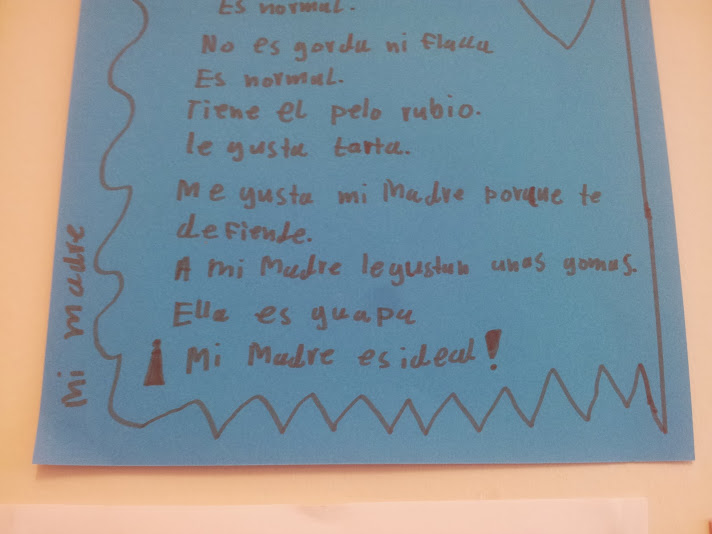 Es normal.
No es gorda ni flaca
Es normal.
Tiene el pelo rubio.
le gusta tarta.
Me gusta mi Madre porque te
defiende.
A mi Madre le gustan unas gomas.
Ella es guapa
¡Mi Madre es ideal!
Mi madre